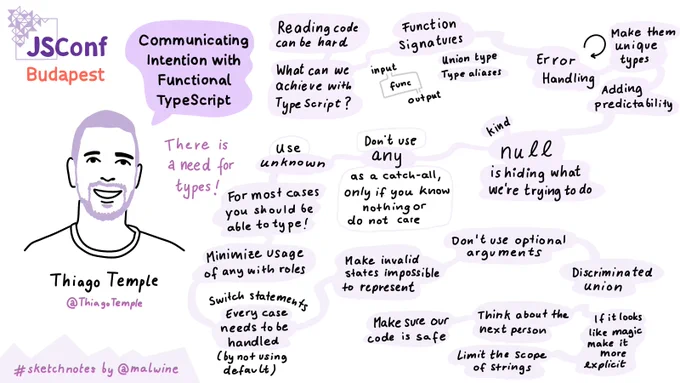 JSConf
Budapest
Communicating
Intention with
Functional
TypeScript
There is
a need for
types!
Thiago Temple
@ThiagoTemple
#sketchnotes by @malwine
Reading code
can be hard
What can we
achieve with
TypeScript?
Function
Signatures
input
func
output
Union type
Type aliases
Error
Handling
Make them
unique
types
Adding
predictability
kind
null
is hiding what
we're trying to do
Don't use
any
as a catch-all,
only if you know
nothing or
do not care
Use
unknown
For most cases
you should be
able to type!
Minimize usage
of any with roles
Switch statements
Every case
needs to be
handled
(by not using
default)
Make invalid
states impossible
to represent
Don't use optional
arguments
Discriminated
union
If it looks
like magic
make it
more
explicit
Think about the
next person
Limit the scope
of strings
Make sure our
code is safe